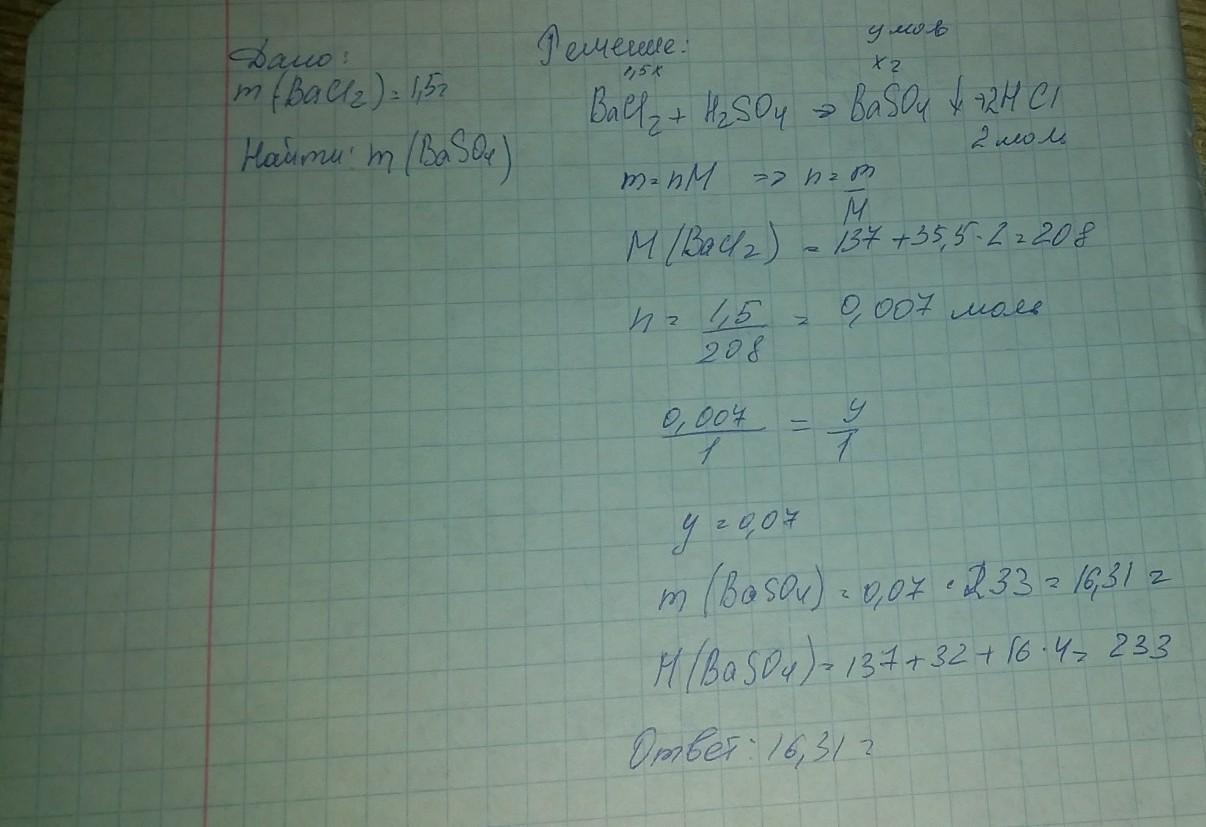 Дано:
m(BaCl₂)=1,5г
Найти: m(BaSO₄)
Решение:
y моль
1,5г x г
BaCl₂ + H₂SO₄ → BaSO₄ ↓ + 2HCl
2 моль
m=nM => n = m/M
M(BaCl₂) = 137 + 35,5·2 = 208
n = 1,5/208 = 0,007 моль
0,007/1 = y/1
y = 0,07
m(BaSO₄) = 0,07 · 233 = 16,31 г
M(BaSO₄) = 137 + 32 + 16·4 = 233
Ответ: 16,31 г